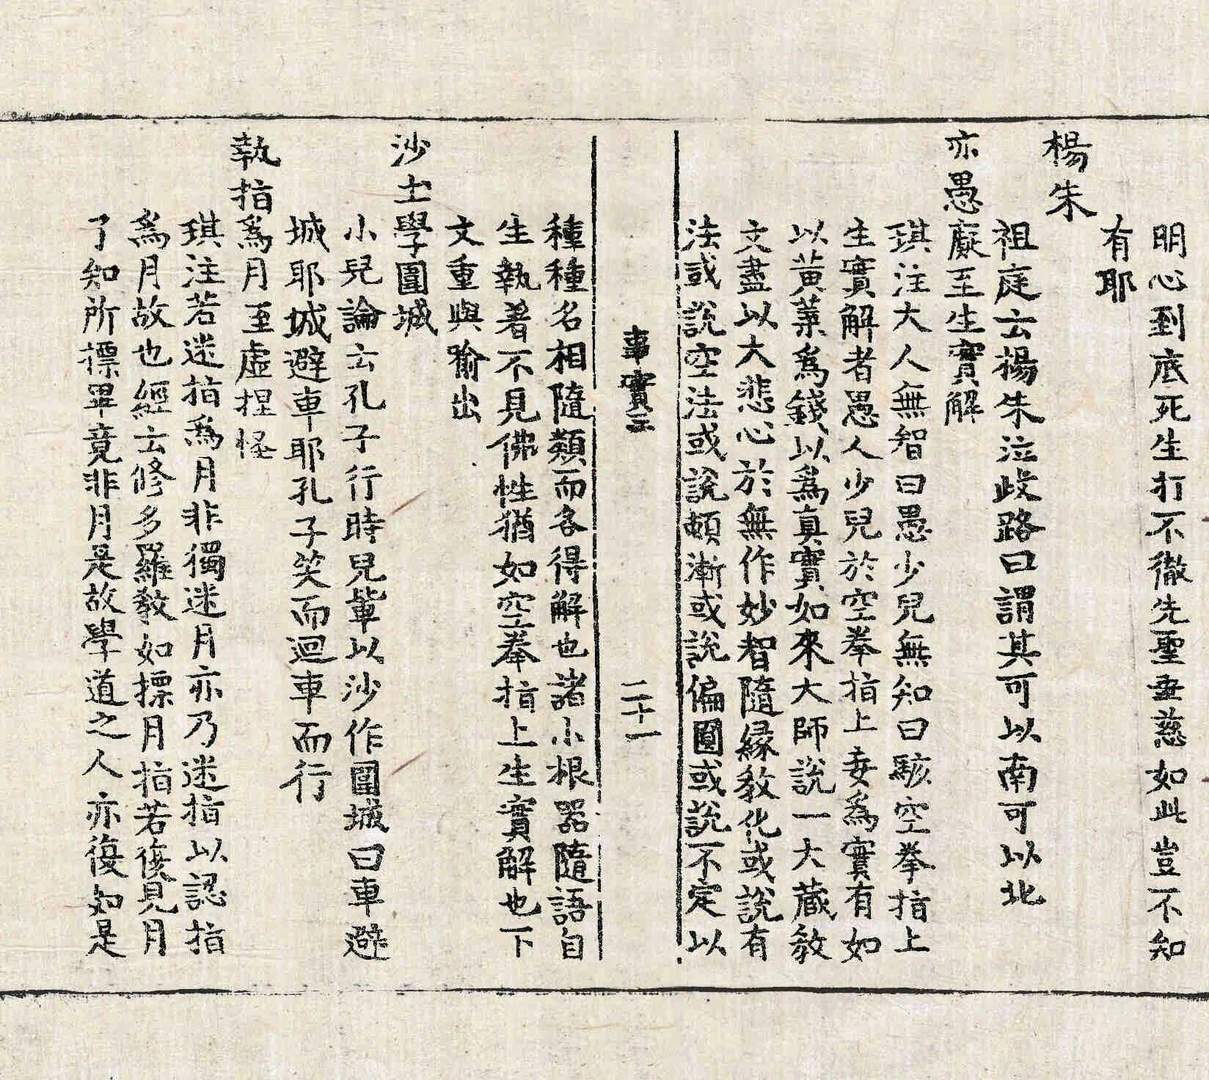 明心到底死生打不徹先聖垂慈如此豈不知
有耶
楊朱
祖庭云楊朱泣歧路曰謂其可以南可以北
亦愚癡至生實解
琪注大人無智曰愚少兒無知曰騃空拳指上
生實解者愚人少兒於空拳指上妄爲實有如
以黃葉爲錢以爲真實如來大師說一大藏教
文盡以大悲心於無作妙智隨緣教化或說有
法或說空法或說頓漸或說偏圓或說不定以
事實三
二十一
種種名相隨類而各得解也諸小根器隨語自
生執着不見佛性猶如空拳指上生實解也下
文重與喻出
沙土學圍城
小兒論云孔子行時兒輩以沙作圍城曰車避
城耶城避車耶孔子笑而迴車而行
執指爲月至虛捏怪
琪注若迷指爲月非獨迷月亦乃迷指以認指
爲月故也經云修多羅教如摽月指若復見月
了知所摽畢竟非月是故學道之人亦復如是